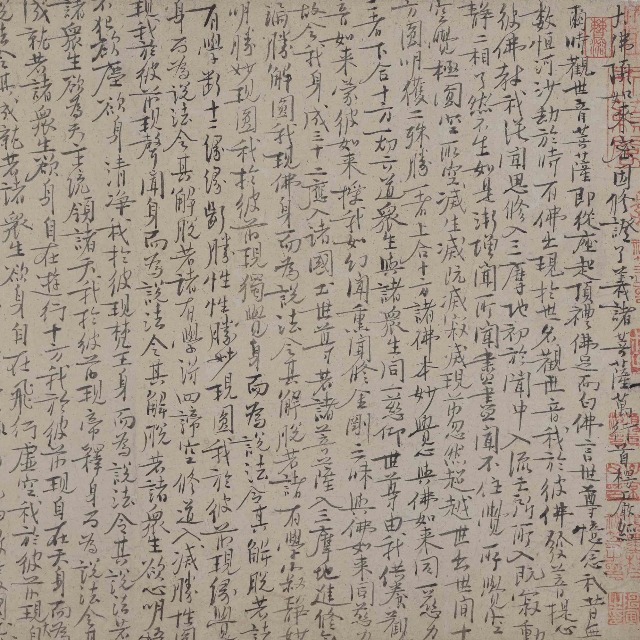 大佛頂如來密因修證了義諸菩薩萬行首楞嚴經
爾時觀世音菩薩即從座起頂禮佛足而白佛言世尊憶念我昔無
數恒河沙劫於時有佛出現於世名觀世音我於彼佛發菩提心
彼佛教我從聞思修入三摩地初於聞中入流亡所所入既寂動
靜二相了然不生如是漸增聞所聞盡盡聞不住覺所覺空
空覺極圓空所空滅生滅既滅寂滅現前忽然超越世出世間十
方圓明獲二殊勝一者上合十方諸佛本妙覺心與佛如來同一慈力
二者下合十方一切六道衆生與諸衆生同一悲仰世尊由我供養觀
音如來蒙彼如來授我如幻聞熏聞修金剛三昧與佛如來同慈力
故令我身成三十二應入諸國土世尊若諸菩薩入三摩地進修無
漏勝解圓我現佛身而為說法令其解脫若諸有學寂靜妙
明勝妙現圓我於彼前現獨覺身而為說法令其解脫若諸
有學斷十二緣緣斷勝性性勝妙現圓我於彼前現緣覺
身而為說法令其解脫若諸有學得四諦空修道入滅勝性圓
現我於彼前現聲聞身而為說法令其解脫若諸衆生欲心明悟
不犯欲塵欲身清淨我於彼現梵王身而為說法令其解脫若
諸衆生欲為天主統領諸天我於彼前現帝釋身而為說法令其
成就若諸衆生欲身自在遊行十方我於彼前現自在天身而為
說法令其成就若諸衆生欲身自在飛行虛空我於彼前現